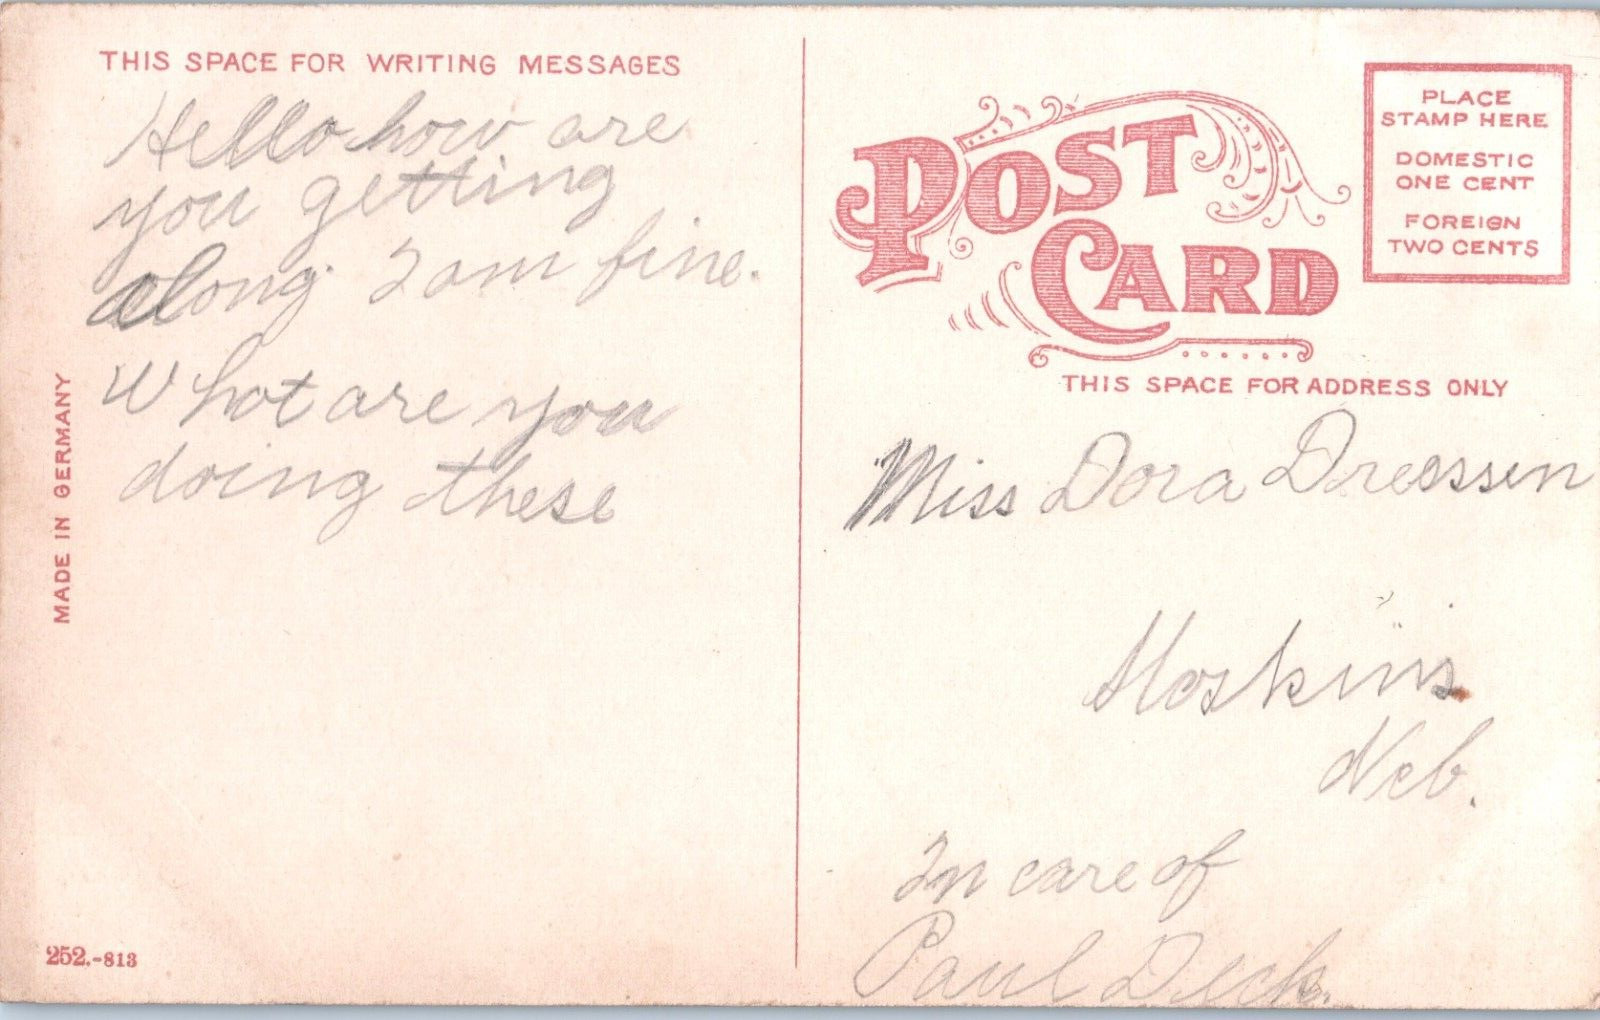 THIS SPACE FOR WRITING MESSAGES
Hello how are
you getting
along. I am fine.
What are you
doing these
MADE IN GERMANY
252.-813
POST
CARD
PLACE
STAMP HERE
DOMESTIC
ONE CENT
FOREIGN
TWO CENTS
THIS SPACE FOR ADDRESS ONLY
Miss Dora Dressen
Hoskins
Neb.
In care of
Paul Deck.